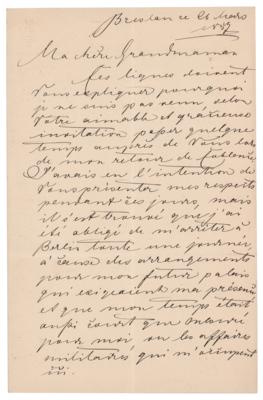 Breslau ce 21 Mars
1889
Ma chère Grandmaman
Ces lignes doivent
Vous expliquer pourquoi
je ne suis pas venu, selon
Votre aimable et gratieuse
invitation passer quelque
temps auprès de Vous lors
de mon retour de Coblence
J'avais eu l'intention de
Vous présenter mes respects
pendant ces jours, mais
il s'est trouvé que j'ai
été obligé de m'arrêter à
Berlin toute une journée
à cause des arrangements
pour mon futur palais
qui exigeaient ma présence
et que mon temps était
aussi court que mesuré
pour moi où les affaires
militaires qui m'occupent
ici.